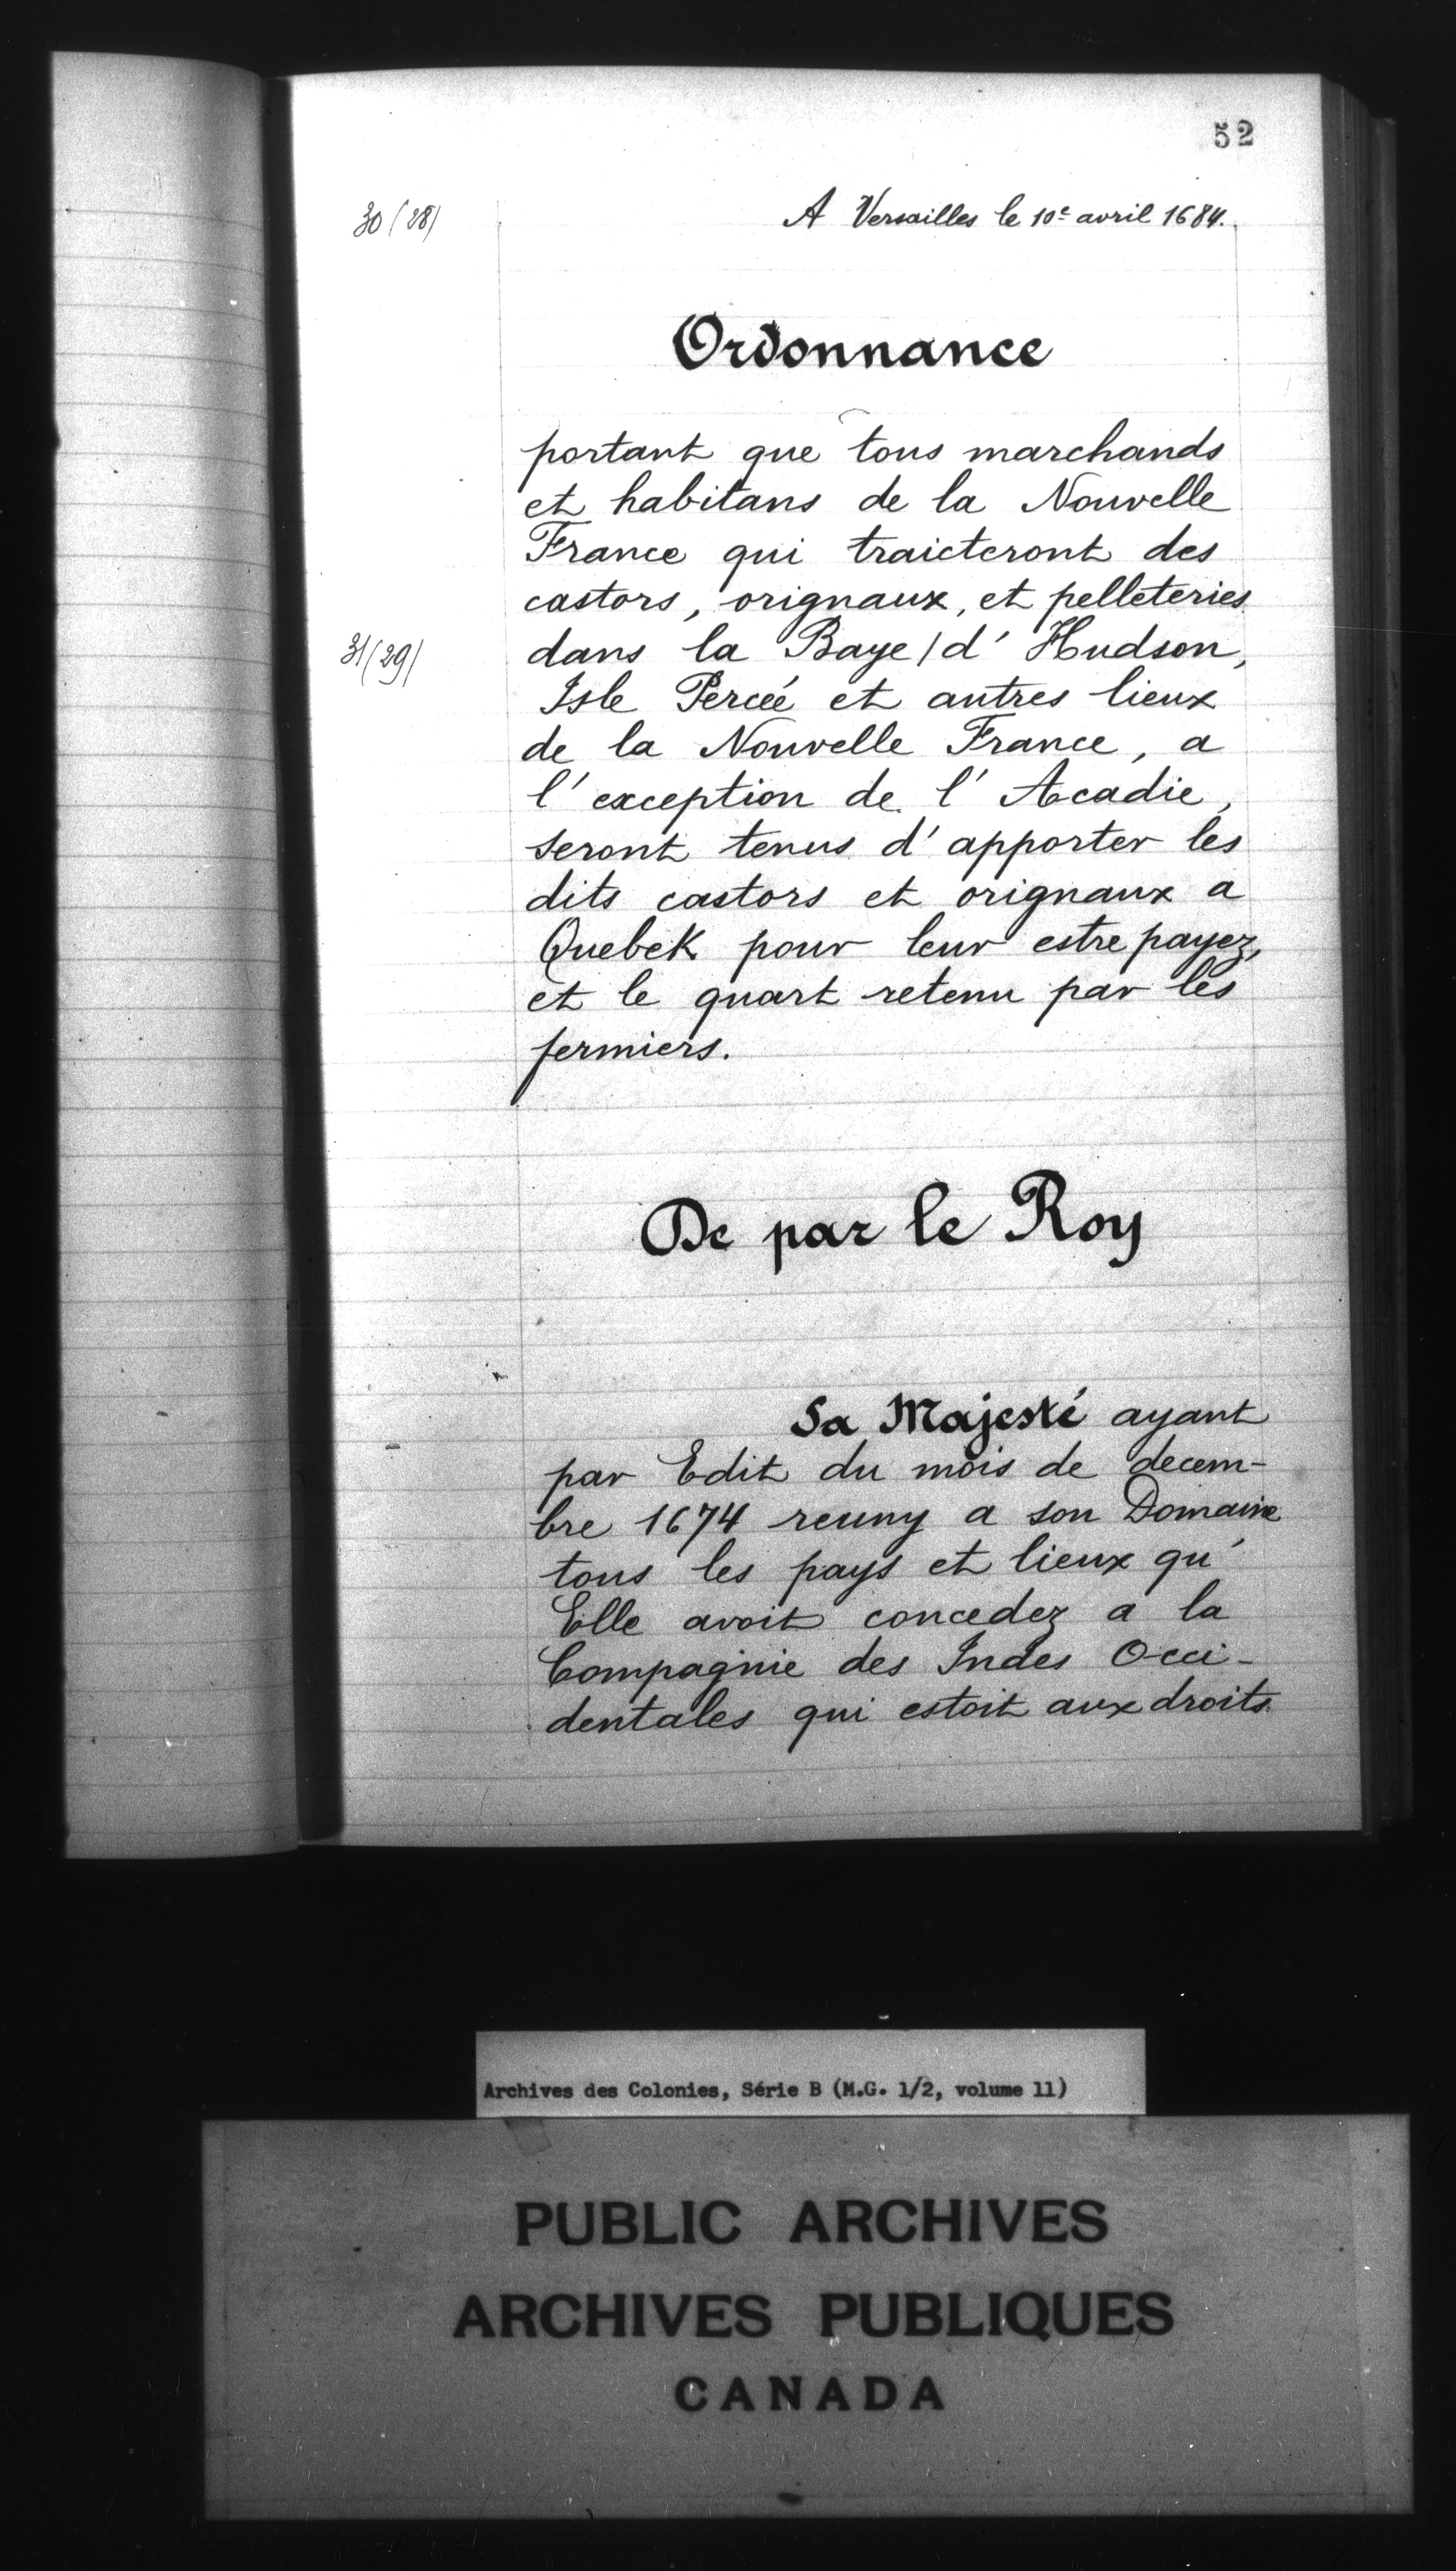 52
30 (28)
A Versailles le 10e avril 1684.
Ordonnance
portant que tous marchands
et habitans de la Nouvelle
France qui traicteront des
castors, orignaux, et pelleteries
31 (29)
dans la Baye / d' Hudson,
Isle Percée et autres lieux
de la Nouvelle France, a
l' exception de l' Acadie,
seront tenus d' apporter les
dits castors et orignaux a
Quebek pour leur estre payez,
et le quart retenu par les
fermiers.
De par le Roy
Sa Majesté ayant
par Edit du mois de decem-
bre 1674 reuny a son Domaine
tous les pays et lieux qu'
Elle avoit concedez a la
Compagnie des Indes Occi-
dentales qui estoit aux droits
Archives des Colonies, Série B (M.G. 1/2, volume 11)
PUBLIC ARCHIVES
ARCHIVES PUBLIQUES
CANADA